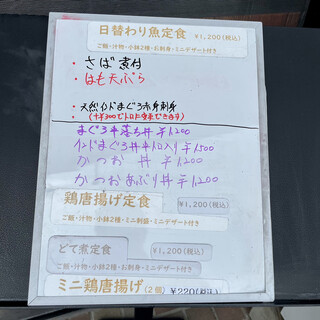 日替わり魚定食 ¥1,200(税込)
ご飯・汁物・小鉢2種・お刺身・ミニデザート付き
・さば煮付
・はも天ぷら
・天然インドまぐろ赤身刺身
まぐろ中落ち丼 ¥1,200
インドまぐろ丼中トロ入り ¥1,500
かつお丼 ¥1,200
かつおあぶり丼 ¥1,200
鶏唐揚げ定食 ¥1,200(税込)
ご飯・汁物・小鉢2種・ミニ刺盛・ミニデザート付き
どて煮定食 ¥1,200(税込)
ご飯・汁物・小鉢2種・お刺身・ミニデザート付き
ミニ鶏唐揚げ(2個) ¥220(税込)